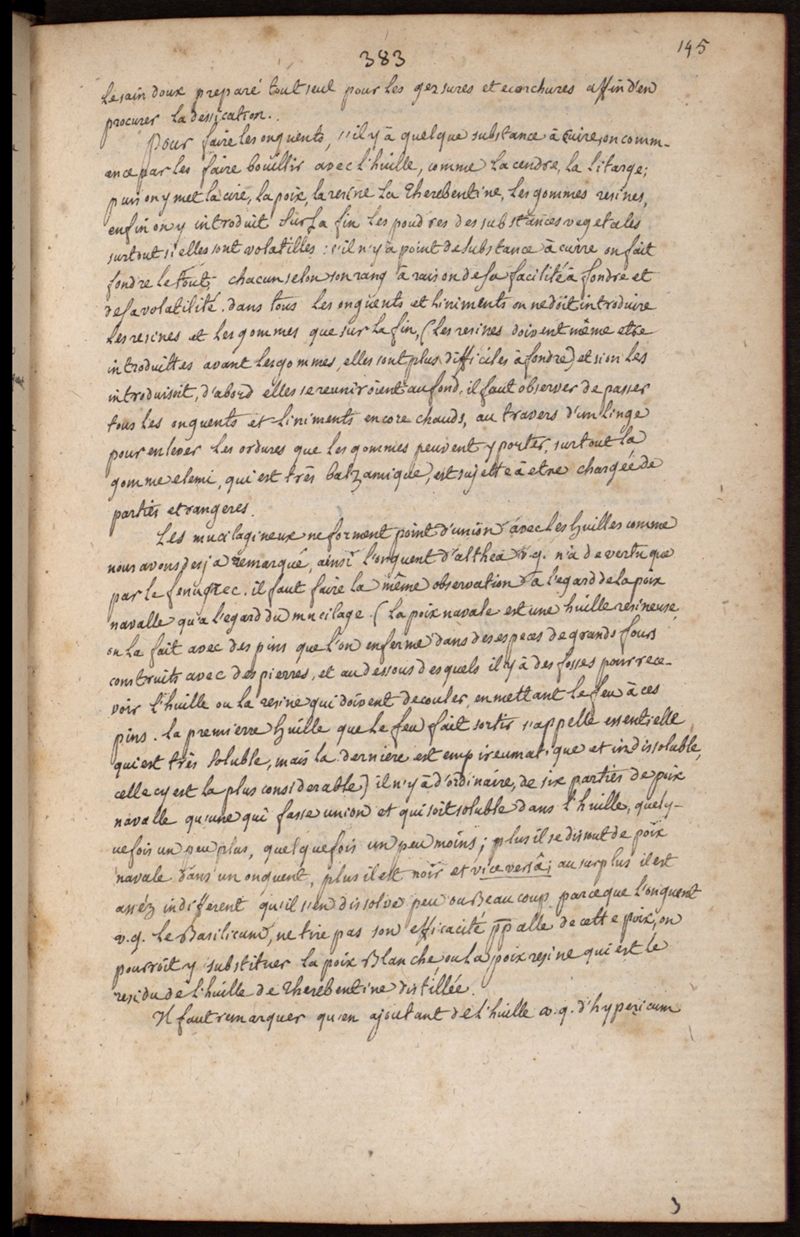 383
145
le sain doux preparé tout seul pour les gersures et ecorchures affin d'en
procurer la dessication.
Pour faire les onguents, s'il y à quelque substance à cuire, on comm-
ence par les faire bouillir avec l'huille, comme la cendre, la litarge;
puis on y met la cire, la poix, la resine la therebentine, les gommes resines,
enfin on y introduit sur la fin les poudres des substances vegetales
surtout si elles sont volatilles: s'il n'y a point de substance à cuire on fait
fondre le tout, chacun selon son rang à raison de sa facilité à fondre et
de sa volatilité. dans tous les onguents et liniments on ne doit introduire
les resines et les gommes que sur la fin, (les resines doivent même etre
introduittes avant les gommes, elles sont plus difficiles à fondre) et si on les
introduisoit, d'abord elles se reuniroient au fond. il faut observer de passer
tous les onguents et liniments encore chauds, au travers d'un linge
pour enlever les ordures que les gommes peuvent y porter, surtout la
gomme elemi, qui est três balzamique, est sujette à etre chargée de
parties etrangeres.
Les mucilagineux ne forment point d'union avec les huilles comme
nous avons desja remarqué, ainsi l'onguent d'althea v.g. n'a de vertu que
par le fenugrec. il faut faire la même observation à l'egard de la poix
navalle qu'a l'egard du mucilage (la poix navale est une huille resineuse,
on la fait avec des pins que l'on enferme dans des especes de grands fours
construits avec des pierres, et au dessous desquels il y à des fosses pour rece-
voir l'huille ou la resine qui doivent decouler, en mettant le feu à ces
pins. la premierre huille que le feu fait sortir s'appelle essentielle
qui est três soluble, mais la derniere est empireumatique et indissoluble,
celle cy est la plus considerable) il n'y à d'ordinaire, de six parties de poix
navalle qu'une qui fasse union et qui soit soluble dans l'huille, quelq-
uefois un peu plus, quelquefois un peu moins; plus il se dissout de poix
navale dans un onguent, plus il est noir et vice versâ; au surplus il est
asséz indiferent qu'il s'en dissolve peu ou Beaucoup parceque l'onguent
v.g. le Basilicum, ne tire pas son efficacité ppalle de cette poix, on
pourroit y substituer la poix Blanche ou la poix resine qui est le
residu de l'huille de therebentine distillée.
Il faut remarquer qu'en ajoutant de l'huille v.g. d'hypericum